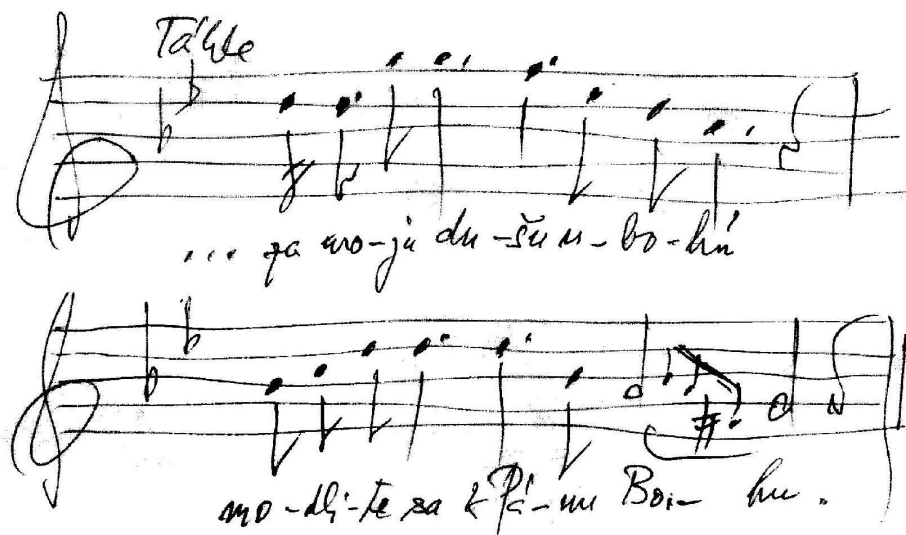 Táhle
... za mo-ju du-šu u-bo-hú
mo-dli-te sa k Pá-nu Bo- hu.